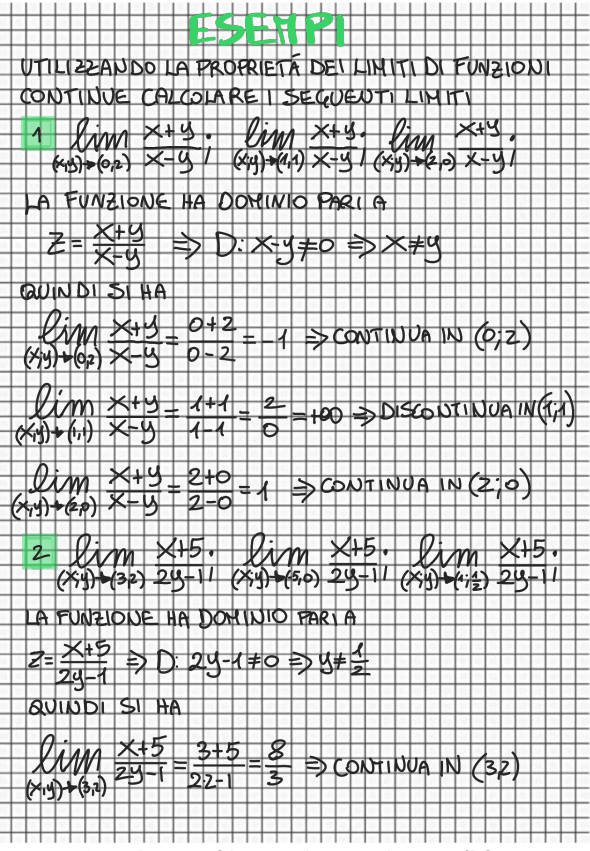 ESEMPI
UTILIZZANDO LA PROPRIETÁ DEI LIMITI DI FUNZIONI
CONTINUE CALCOLARE I SEGUENTI LIMITI
1 lim (x,y)→(0,2) x+y/x-y ; lim (x,y)→(1,1) x+y/x-y ; lim (x,y)→(2,0) x+y/x-y ;
LA FUNZIONE HA DOMINIO PARI A
Z = x+y/x-y ⇒ D: x-y≠0 ⇒ x≠y
QUINDI SI HA
lim (x,y)→(0,2) x+y/x-y = 0+2/0-2 = -1 ⇒ CONTINUA IN (0;2)
lim (x,y)→(1,1) x+y/x-y = 1+1/1-1 = 2/0 = +∞ ⇒ DISCONTINUA IN (1;1)
lim (x,y)→(2,0) x+y/x-y = 2+0/2-0 = 1 ⇒ CONTINUA IN (2;0)
2 lim (x,y)→(3,2) x+5/2y-1 ; lim (x,y)→(5,0) x+5/2y-1 ; lim (x,y)→(1;1/2) x+5/2y-1 ;
LA FUNZIONE HA DOMINIO PARI A
Z = x+5/2y-1 ⇒ D: 2y-1≠0 ⇒ y≠1/2
QUINDI SI HA
lim (x,y)→(3,2) x+5/2y-1 = 3+5/2·2-1 = 8/3 ⇒ CONTINUA IN (3,2)